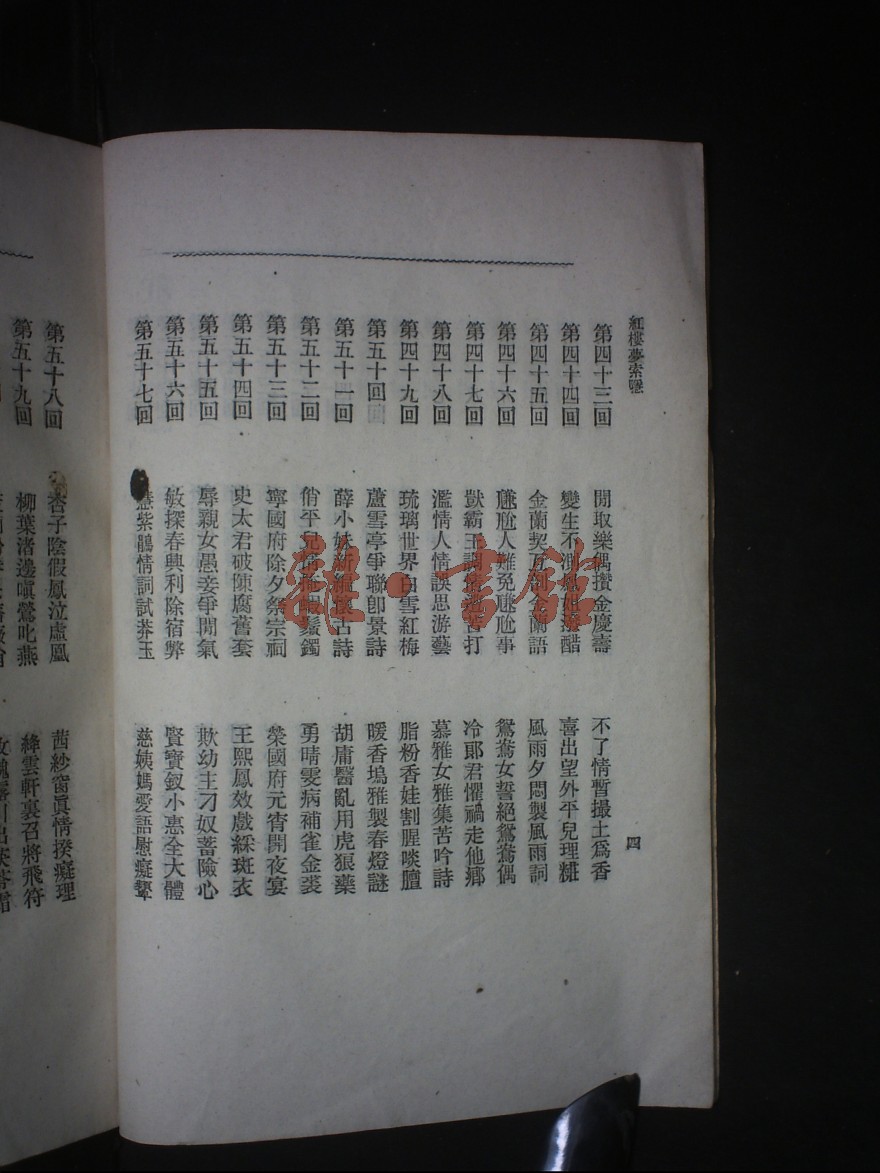 紅樓夢索隱
四
第四十三回 閒取樂偶攢金慶壽 不了情暫撮土爲香
第四十四回 變生不測鳳姐潑醋 喜出望外平兒理粧
第四十五回 金蘭契互剖金蘭語 風雨夕悶製風雨詞
第四十六回 尷尬人難免尷尬事 鴛鴦女誓絕鴛鴦偶
第四十七回 獃霸王調情遭苦打 冷郞君懼禍走他鄕
第四十八回 濫情人情誤思游藝 慕雅女雅集苦吟詩
第四十九回 琉璃世界白雪紅梅 脂粉香娃割腥啖膻
第五十回 蘆雪亭爭聯卽景詩 暖香塢雅製春燈謎
第五十一回 薛小妹新編懷古詩 胡庸醫亂用虎狼藥
第五十二回 俏平兒情掩蝦鬚鐲 勇晴雯病補雀金裘
第五十三回 寧國府除夕祭宗祠 榮國府元宵開夜宴
第五十四回 史太君破陳腐舊套 王熙鳳效戲綵斑衣
第五十五回 辱親女愚妾爭閒氣 欺幼主刁奴蓄險心
第五十六回 敏探春興利除宿弊 賢寶釵小惠全大體
第五十七回 慧紫鵑情詞試莽玉 慈姨媽愛語慰癡顰
第五十八回 杏子陰假鳳泣虛凰 茜紗窗眞情揆癡理
第五十九回 柳葉渚邊嗔鶯叱燕 絳雲軒裏召將飛符
雜·書館